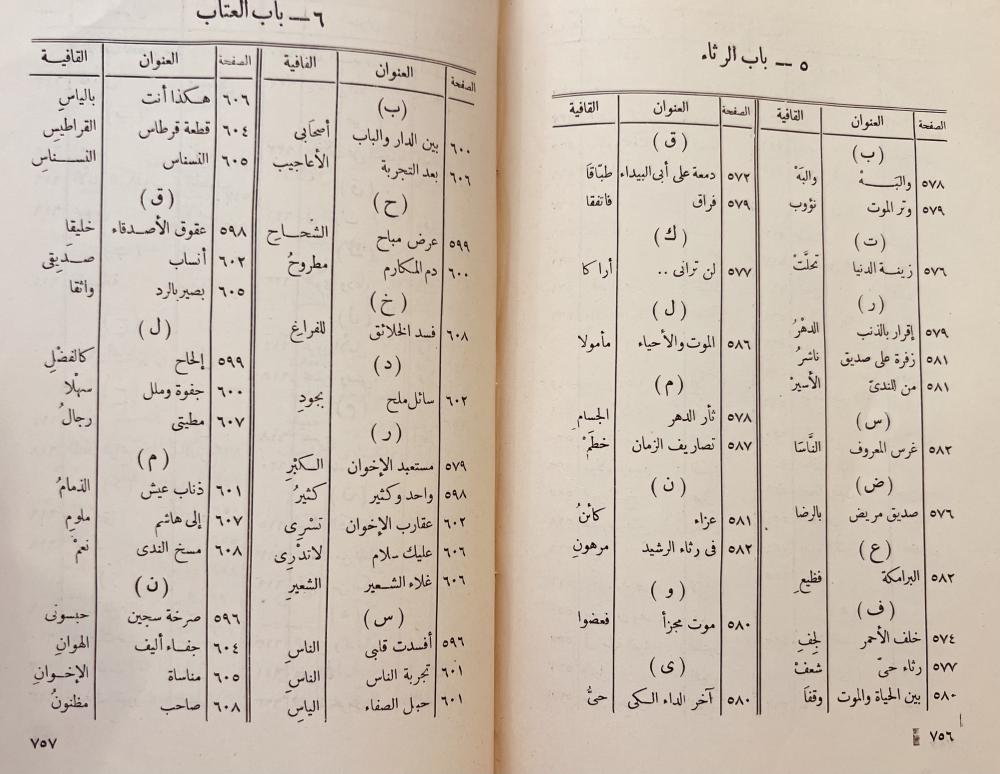 ٥ — باب الرثاء
الصفحة العنوان القافية
(ب)
٥٧٨ والبَـــهْ والبَهْ
٥٧٩ وتر الموت نؤوب
(ت)
٥٧٦ زينـة الدنيا تجلَّتْ
(ر)
٥٧٩ إقرار بالذنب الدهْرُ
٥٨١ زفرة على صديق ناشرُ
٥٨١ من للندىّ الأسيرْ
(س)
٥٨٢ غرس المعروف النَّاسَا
(ض)
٥٧٦ صديق مريض بالرضا
(ع)
٥٨٢ البرامكة فظيعِ
(ف)
٥٧٤ خلف الأحمر لِجفِ
٥٧٧ رثاء حىّ شعفْ
٥٨٠ بين الحياة والموت وقفَا
الصفحة العنوان القافية
(ق)
٥٧٢ دمعة على أبى البيداء طبّاقَا
٥٧٩ فراق فانفقا
(ك)
٥٧٧ لن ترانى .. أراكا
(ل)
٥٨٦ الموت والأحياء مأمولا
(م)
٥٧٨ ثأر الدهر الجسامِ
٥٨٧ تصاريف الزمان خطَمْ
(ن)
٥٨١ عزاء كائنُ
٥٨٢ فى رثاء الرشيد مرهونِ
(و)
٥٨٠ موت مجزأ فعضوا
(ى)
٥٨٠ آخر الداء الكى حىُّ
٧٥٦
٦ — باب العتاب
الصفحة العنوان القافية
(ب)
٦٠٠ بين الدار والباب أصحَابى
٦٠٦ بعد التجربة الأعاجيب
(ح)
٥٩٩ عرض مباح الشّحـــاحِ
٦٠٠ دم المكارم مطروحُ
(خ)
٦٠٨ فسد الخلائق للفراغِ
(د)
٦٠٢ سائل ملح بجودِ
(ر)
٥٧٩ مستعبد الإخوان الـكبْرِ
٥٩٨ واحد وكثير كثيرُ
٦٠٢ عقارب الإخوان تسْرِى
٦٠٦ عليك سلام لاتدْرِى
٦٠٦ غلاء الشـعير الشعيرِ
(س)
٥٩٦ أفسدت قلبى الناسِ
٦٠١ تجربة الناس الناسِ
٦٠١ حبل الصفاء الياسِ
الصفحة العنوان القافيـة
٦٠٦ هـكذا أنت بالياسِ
٦٠٤ قطعة قرطاس القراطيسِ
٦٠٥ النسناس النســناسِ
(ق)
٥٩٨ عقوق الأصـدقاء خليقا
٦٠٢ أنساب صـدَيِقى
٦٠٥ بصير بالرد واثقا
(ل)
٥٩٩ إلحاح كالفضْلِ
٦٠٠ جفوة وملل سهْلا
٦٠٧ مطيتى رجالُ
(م)
٦٠١ ذناب عيش الذمامُ
٦٠٧ إلى هاشم ملومِ
٦٠٨ مسخ الندى نعمْ
(ن)
٥٩٦ صرخة سجين حبسونى
٦٠٤ جفـاء أليف الهوانِ
٦٠٥ مناساة الإخــوانِ
٦٠٨ صاحب مظنونُ
٧٥٧